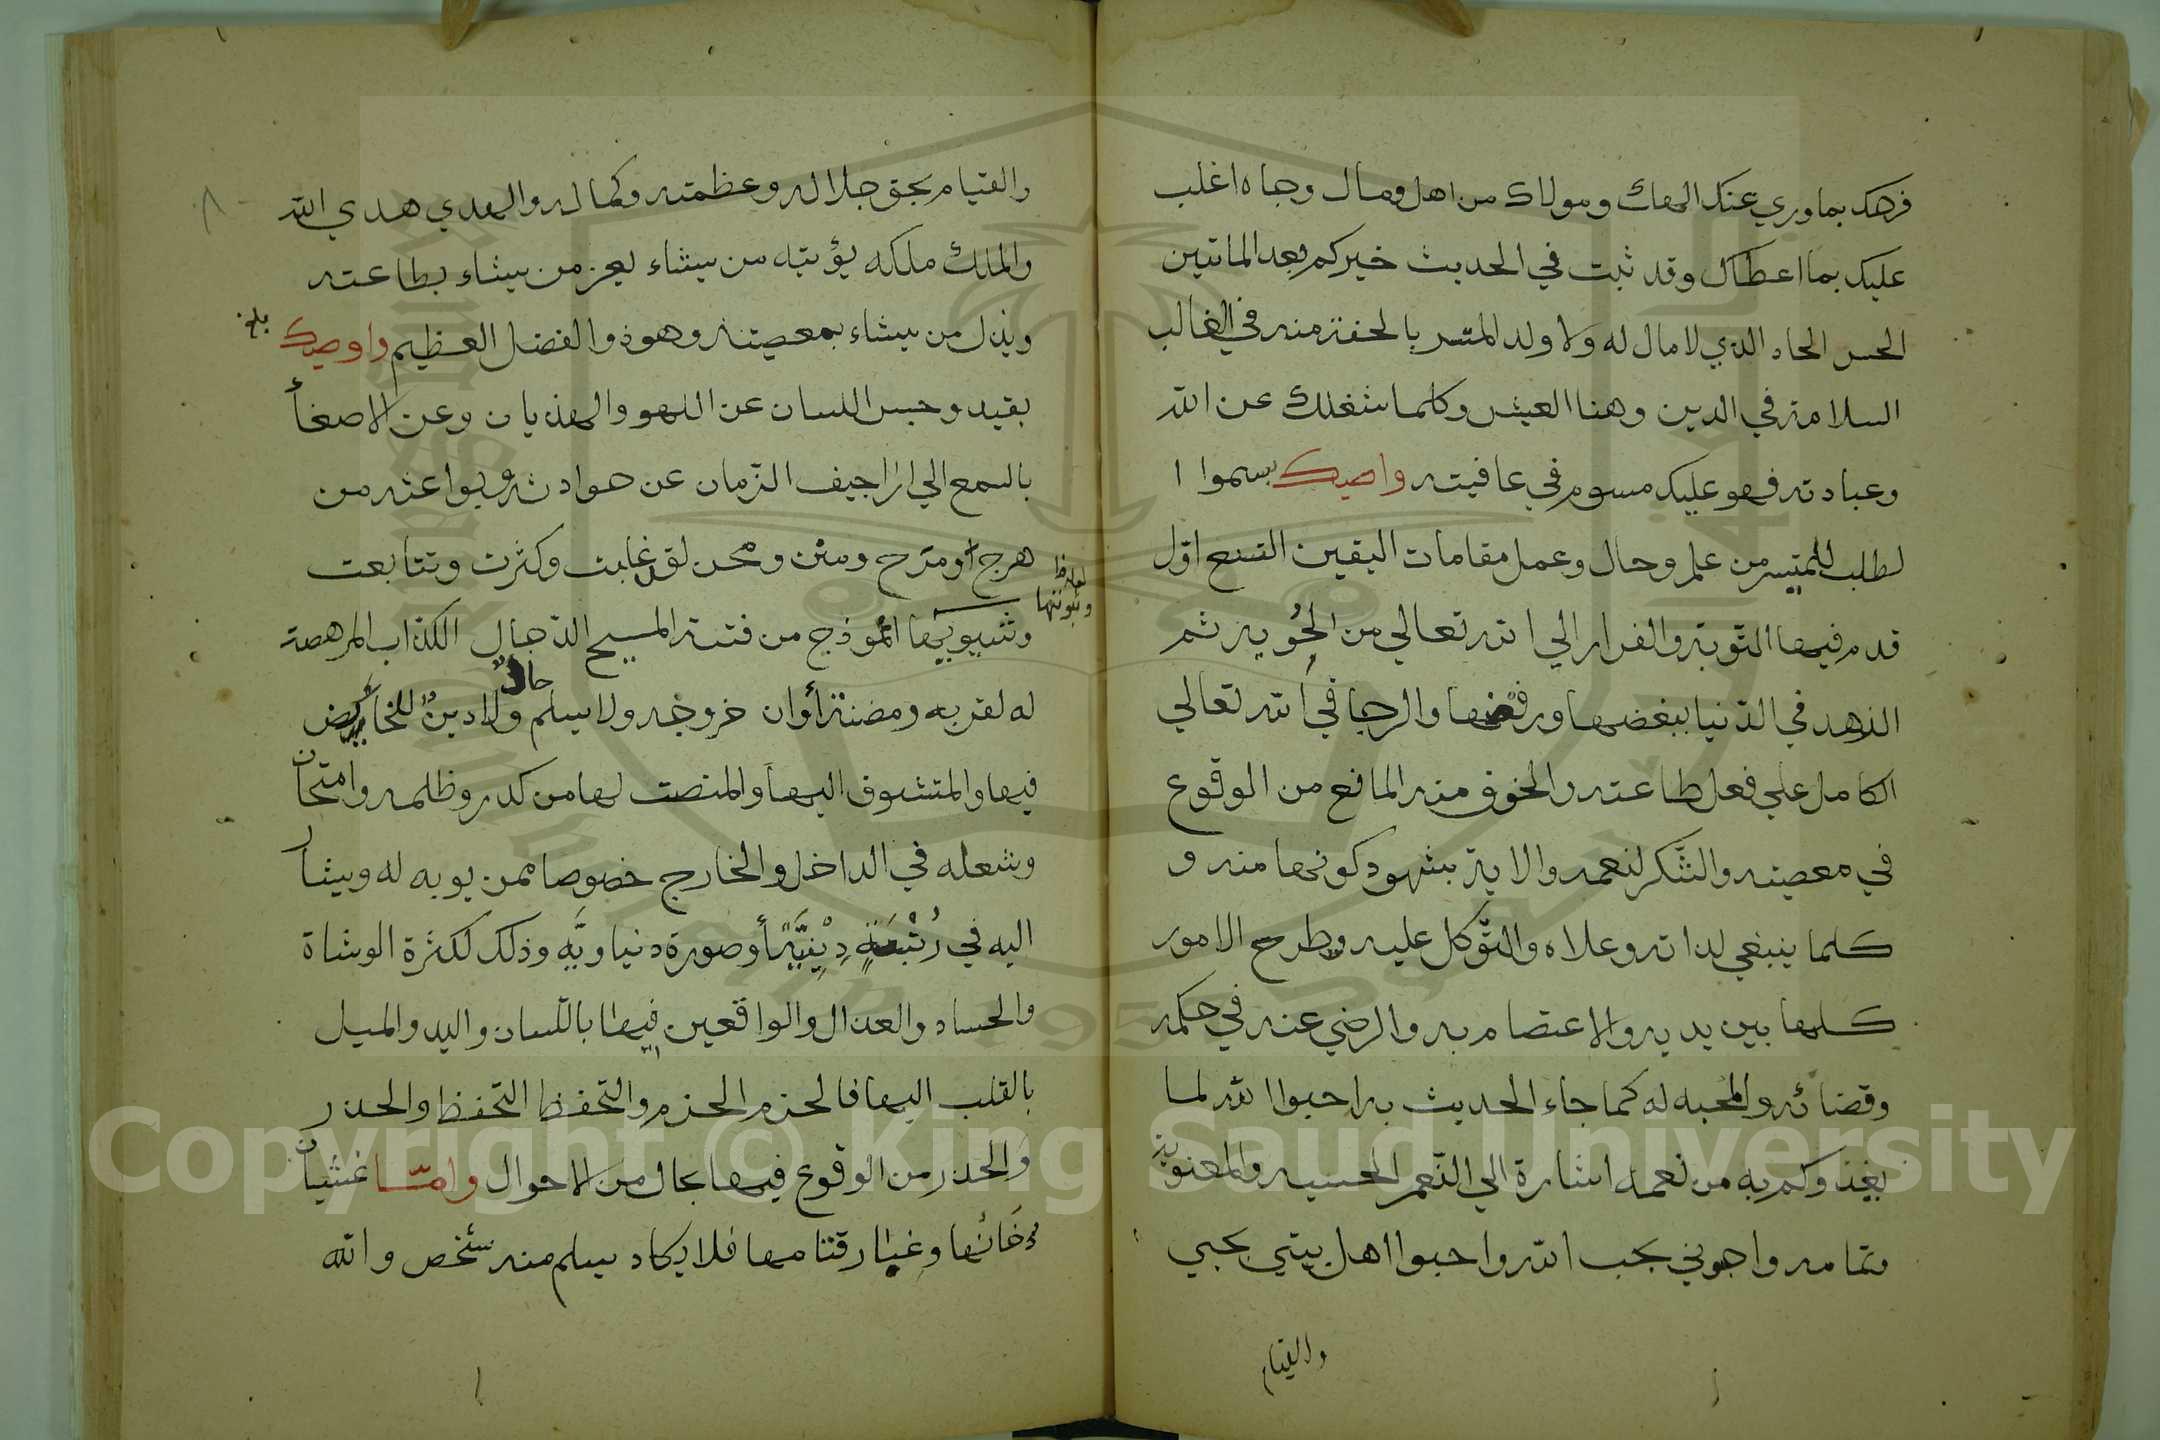 فرهك بما وري عنك الهاك ومولاك من اهل ومال وجاه اغلب
عليك بما اعطاك وقد ثبت في الحديث خيركم بعد الماتين
الحاد الذي لا مال له ولا ولد منه في الغالب
السلامة في الدين وهنا العيش وكلما شغلك عن الله
وعبادته فهو عليك مسوم في عافيته واصيك بسموا ا
لطلب للمتيسر من علم وحال وعمل مقامات اليقين التسع اول
قدم فيها التوبة والفرار الي الله تعالي من الحوبه ثم
الزهد في الدنيا ببغضها ورفضها والرجا في الله تعالي
الكامل علي فعل طاعته والخوف منه المانع من الوقوع
في معصيته والشكر لنعمه والايه بشهود كونها منه و
كلما ينبغي لذاته وعلاه والتوكل عليه وطرح الامور
كلها بين يديه والاعتصام به والرضي عنه في حكمه
وقضائه والمحبه له كما جاء الحديث به احبوا الله لما
يغذوكم به من نعمه اشارة الي النعم الحسيه والمعنوية
وتمامه واحبوني بحب الله واحبوا اهل بيتي بحبي
والقيام
والقيام بحق جلاله وعظمته وكماله والهدي هدي الله
والملك ملكه يؤتيه من يشاء يعز من يشاء بطاعته
ويذل من يشاء بمعصيته وهو ذو الفضل العظيم واوصيك
بلغ
بقيد وحبس اللسان عن اللهو والهذيان وعن الاصغأ
بالسمع الي اراجيف الزمان عن حوادثه وبواعثه من
هرج أو مرج ومتن ومحن لقد غابت وكثرت وتتابعت
أنموذج من فتنة المسيح الدجال الكذاب المرهصة
له لقربه ومضنة أوان خروجه ولا يسلم حال ولا دين للخائض
فيها والمتشوف اليها والمنصت لها من كدر وظلمه وامتحان
وشعله في الداخل والخارج خصوصا ممن يوبه له ويشار
اليه في رتبة دينية أو صورة دنياوية وذلك لكثرة الوشاة
والحساد والعذال والواقعين فيها باللسان واليد والميل
بالقلب اليها فالحزم الحزم والتحفظ التحفظ والحذر
والحذر من الوقوع فيها بحال من الاحوال وامّا غشيان
دخانها وغبار قتامها فلا يكاد يسلم منه شخص والله
Copyright © King Saud University